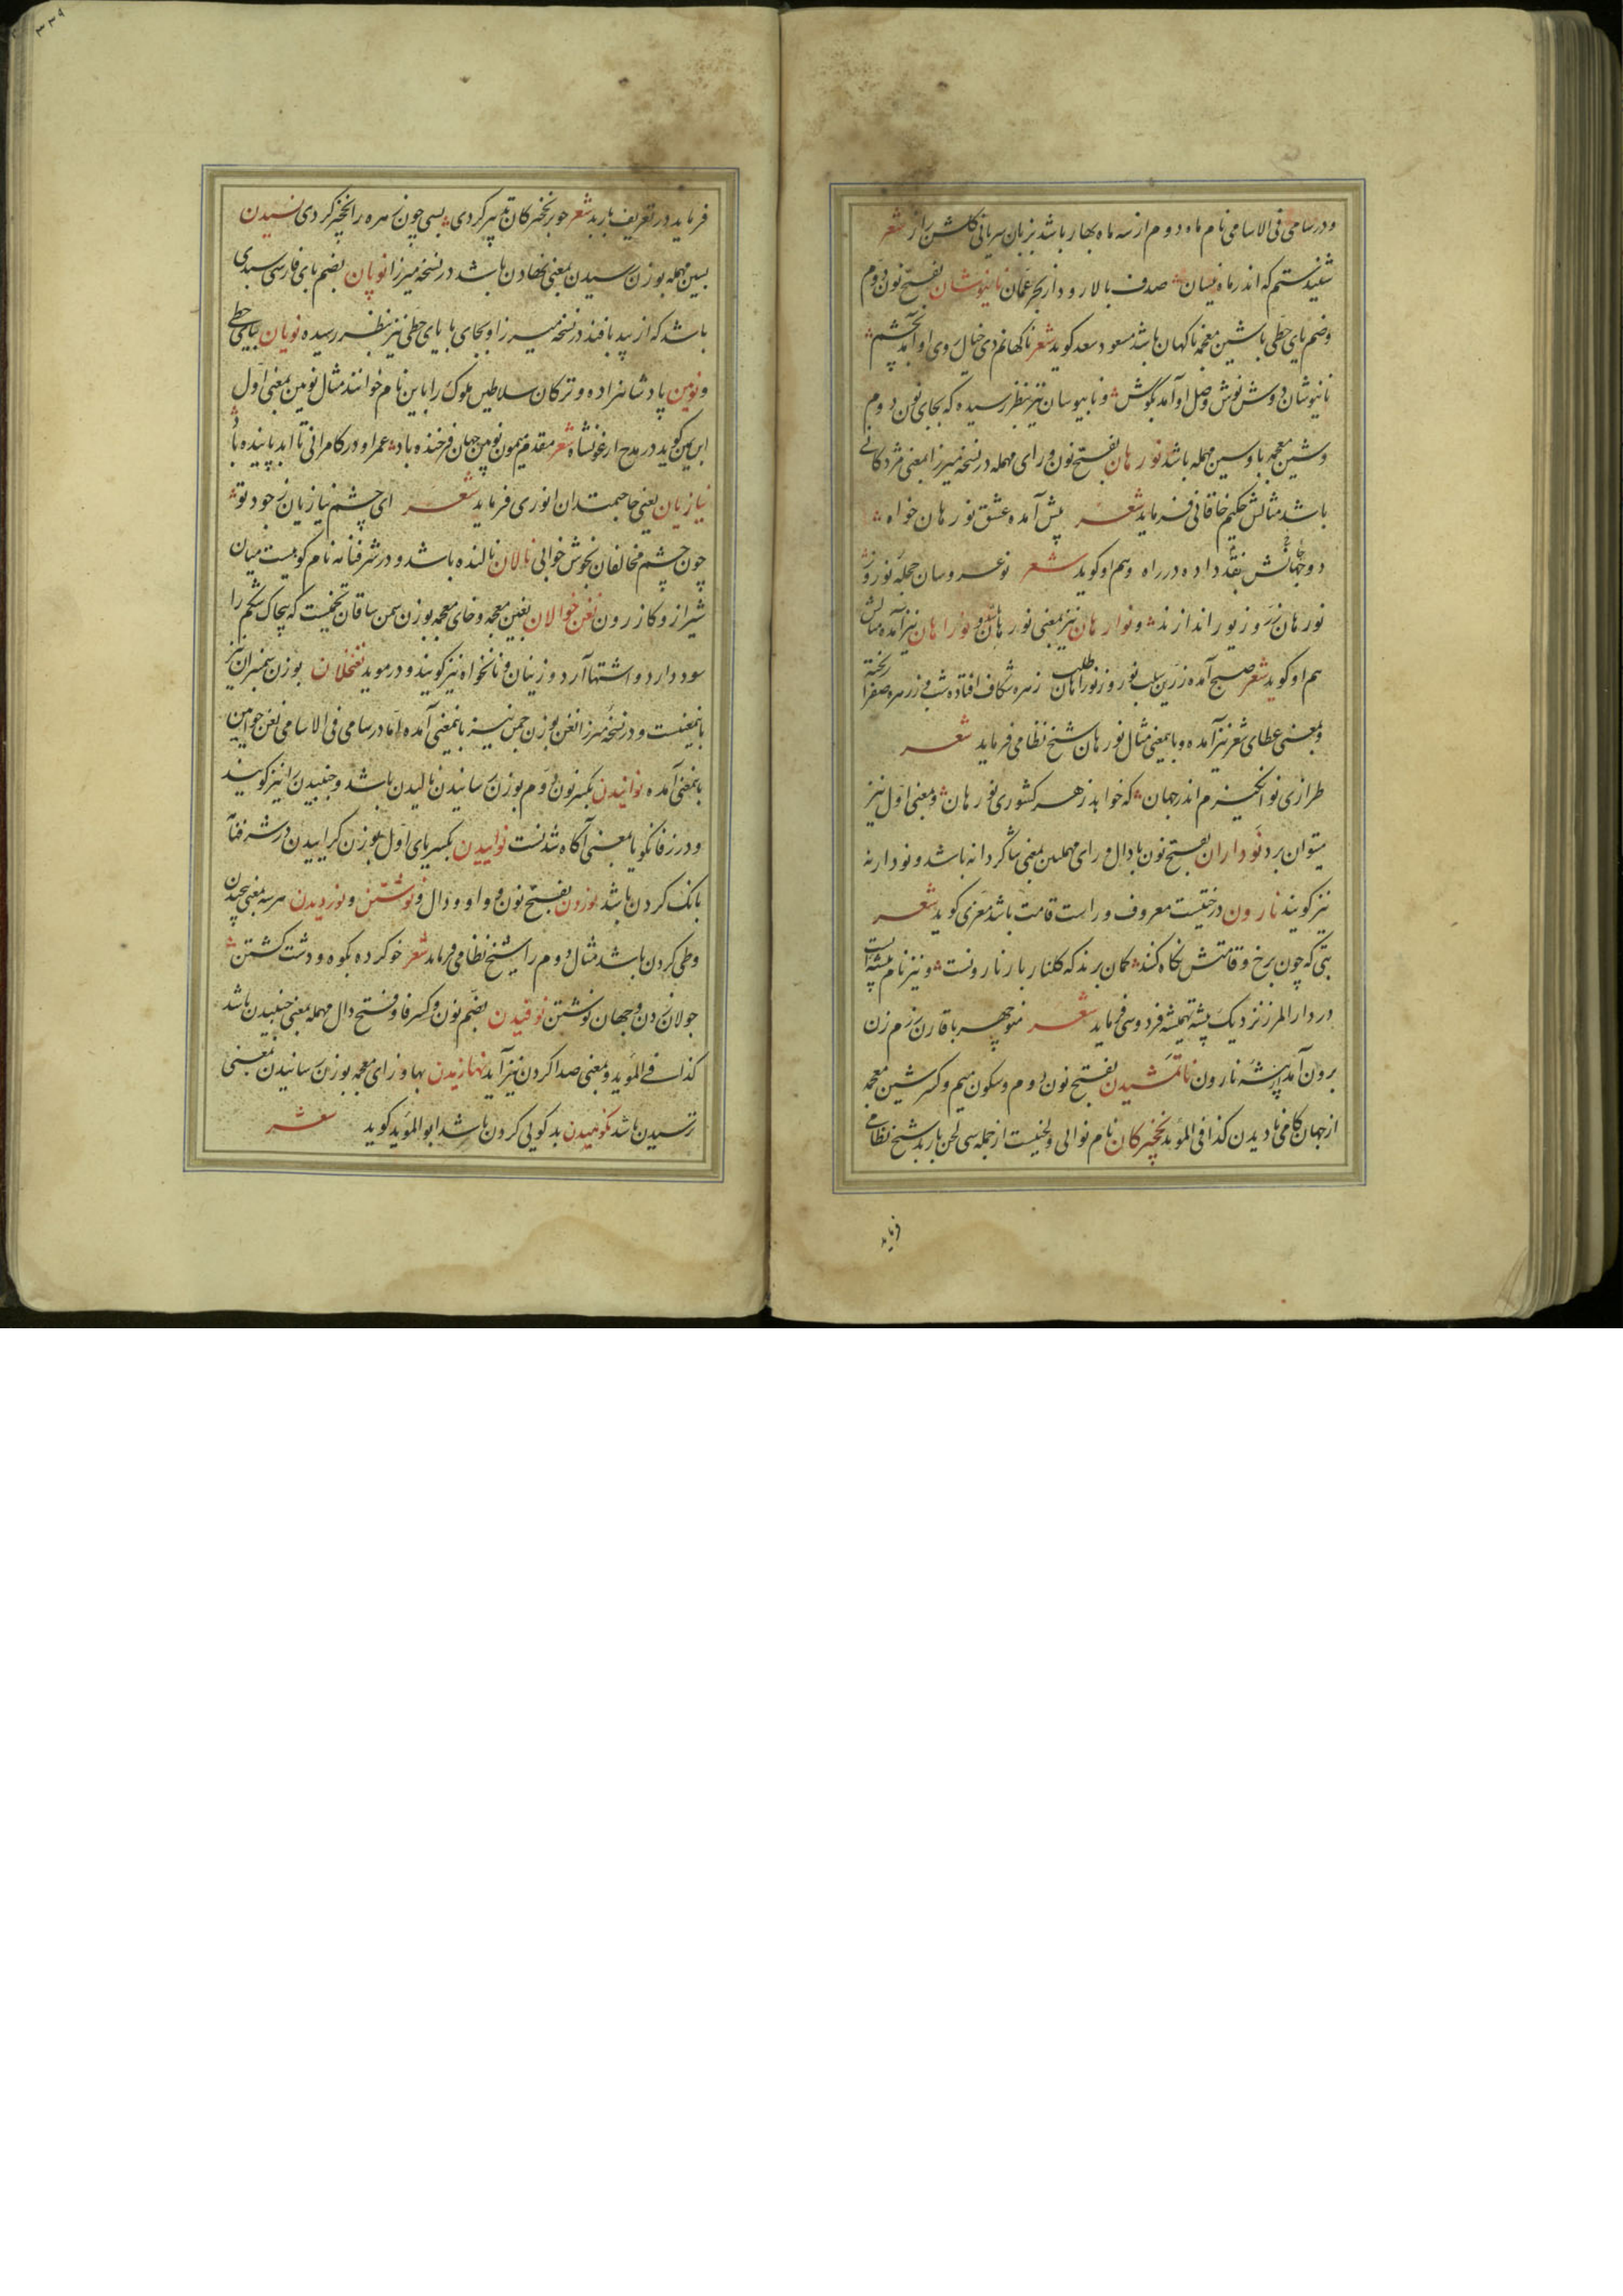 و در سامی فی الاسامی نام ماه دوم از سه ماه بهار باشد بزبان سریانی گلشن راز شعر
شنیدستم که اندر ماه نیسان صدف بالا رود از بحر عمان نانیوشان بفتح نون دوم
وضم یای حطی با شین معجمه ناکهان باشد مسعود سعد کوید شعر ناکهانم دی خیال روی او آمد بچشم
نانیوشان دوش نوش وصل او آمد بگوش و نابیوسان نیز بنظر رسیده که بجای نون دوم
و شین معجمه با و سین مهمله باشد نورهان بفتح نون و رای مهمله در نسخه میرزا بمعنی مژدکانی
باشد مثالش حکیم خاقانی فرماید شعر پیش آمده عشق نورهان خواه
دو جهانش بنقد داده در راه و هم او کوید شعر نوعروسان حجله نوروز
نورهان زر و زیور اندازند و نوارهان نیز بمعنی نورهان و نوراهان نیز آمده مثالش
هم او کوید شعر صبح آمده زرین سلب نوروز نوراهان طلب زهره شکاف افتاده شب وز زهره صفرا ریخته
و بمعنی عطای شعر نیز آمده و باین معنی مثال نورهان شیخ نظامی فرماید شعر
طرازی نو انکیزم اندر جهان که خواهد ز هر کشوری نورهان و معنی اول نیز
میتوان برد نوداران بفتح نون با دال و رای مهملین بمعنی شاکردانه باشد و نودارنه
نیز کویند نارون درختیست معروف و راست قامت باشد معزی کوید شعر
بتی که چون برخ و قامتش نکاه کنند کمان برند که کلنار بار نارونست و نیز نام بیشه است
در دار المرز نزدیک بیشه تمیشه فردوسی فرماید شعر منوچهر با قارن رزم زن
برون آمد از بیشه نارون ناتمشیدن بفتح نون دوم و سکون میم و کسر شین معجمه
از جهان کامی نادیدن کذا فی المؤید نخچیرکان نام نوائی و لحنیست از جمله سی لحن باربد شیخ نظامی
فرماید
۳۳۹
فرماید در تعریف باربد شعر چو بر نخچیرکان تدبیر کردی بسی چون زهره را نخچیر کردی نسیدن
بسین مهمله بوزن رسیدن بمعنی نهادن باشد در نسخه میرزا نوپان بضم بای فارسی سبدی
باشد که از بید بافند در نسخه میرزا و بجای با یای حطی نیز بنظر رسیده نویان بیای حطی
و نوین پادشاهزاده و ترکان سلاطین ملوک را باین نام خوانند مثال نوین بمعنی اول
ابن یمین کوید در مدح ارغونشاه شعر مقدم میمون نوین جهان فرخنده باد عمر او در کامرانی تا ابد پاینده باد
نیازیان یعنی حاجتمندان انوری فرماید شعر ای چشم نیازیان ز جود تو
چون چشم مخالفان بخوش خوابی نالان نالنده باشد و در شرفنامه نام کوهیست میان
شیراز و کازرون نغن خوالان بغین معجمه و خای معجمه بوزن سمن ساقان تخمیست که پیچاک شکم را
سود دارد و اشتها آرد و زنیان و نانخواه نیز کویند و در موید نغخلان بوزن سمنبران نیز
باینمعنیست و در نسخه میرزا نغن بوزن چمن نیز باینمعنی آمده اما در سامی فی الاسامی نغن خوالین
باینمعنی آمده نوانیدن بکسر نون دوم بوزن رسانیدن نالیدن باشد و جنبیدن را نیز کویند
و در زفانکویا بمعنی آکاه شدنست نواییدن بکسر یای اول بوزن کراییدن در شرفنامه
بانک کردن باشد نوردن بفتح نون و واو و دال و نوشتن و نوردیدن هر سه بمعنی پیچیدن
و طی کردن باشد مثال دوم را شیخ نظامی فرماید شعر خو کرده بکوه و دشت کشتن
جولان زدن و جهان نوشتن نوفیدن بضم نون و کسر فا و فتح دال مهمله بمعنی جنبیدن باشد
کذا فی المؤید و بمعنی صدا کردن نیز آید نهازیدن بها و زای معجمه بوزن رسانیدن بمعنی
ترسیدن باشد نکوهیدن بد کویی کردن باشد ابو المؤید کوید شعر